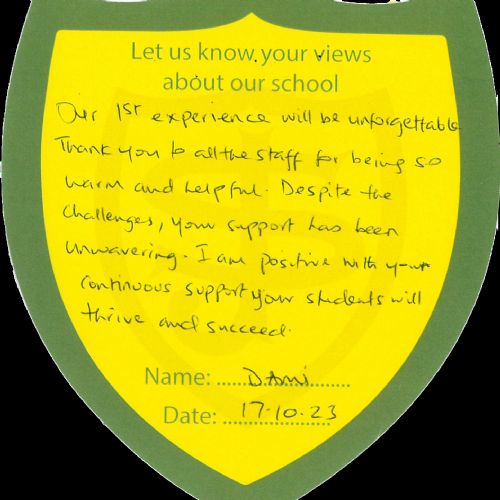 Let us know your views
about our school
Our 1st experience will be unforgettable
Thank you to all the staff for being so
warm and helpful. Despite the
challenges, your support has been
unwavering. I am positive with your
continuous support your students will
thrive and succeed.
Name: Dami
Date: 17.10.23